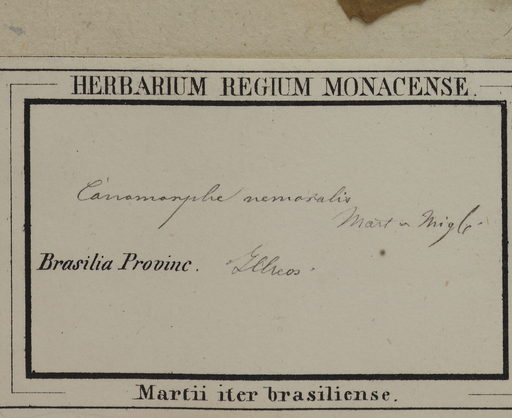 HERBARIUM REGIUM MONACENSE.
Conomorphe nemoralis
Mart
Brasilia Provinc.
Martii iter brasiliense.